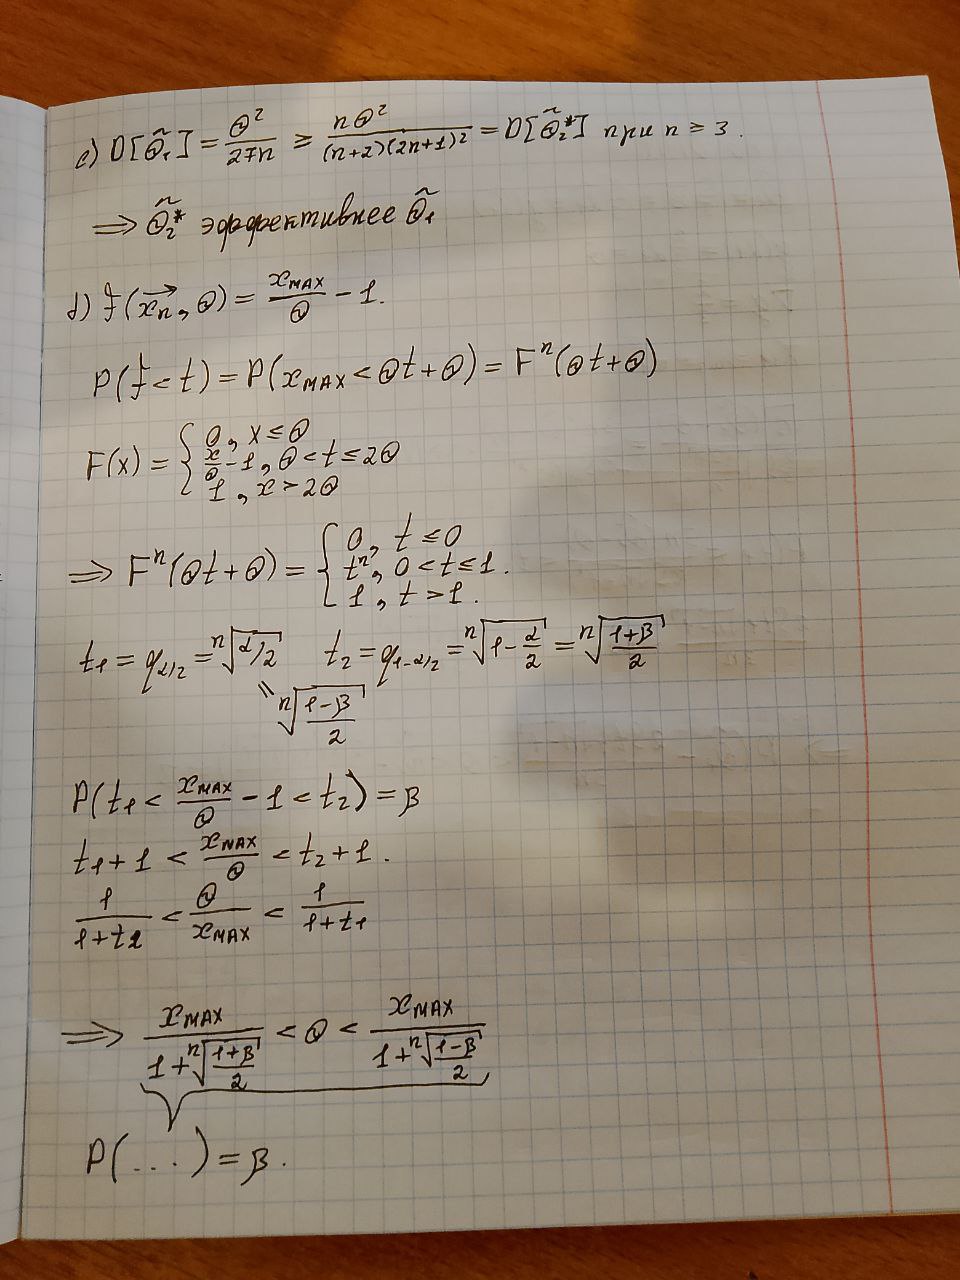 c) D[θ̃₁] = θ²/27n ≥ nθ²/(n+2)(2n+1)² = D[θ̃₂*] при n ≥ 3.
⟹ θ̃₂* эффективнее θ̃₁
d) f(x⃗ₙ, θ) = x_MAX/θ − 1.
P(f < t) = P(x_MAX < θt + θ) = Fⁿ(θt + θ)
F(x) = { 0, x ≤ θ
x/θ − 1, θ < t ≤ 2θ
1, x > 2θ
⟹ Fⁿ(θt + θ) = { 0, t ≤ 0
tⁿ, 0 < t ≤ 1.
1, t > 1.
t₁ = q_α/2 = ⁿ√(α/2) t₂ = q_1−α/2 = ⁿ√(1 − α/2) = ⁿ√((1+β)/2)
= ⁿ√((1−β)/2)
P(t₁ < x_MAX/θ − 1 < t₂) = β
t₁ + 1 < x_MAX/θ < t₂ + 1.
1/(1+t₂) < θ/x_MAX < 1/(1+t₁)
⟹ x_MAX/(1 + ⁿ√((1+β)/2)) < θ < x_MAX/(1 + ⁿ√((1−β)/2))
P(...) = β.